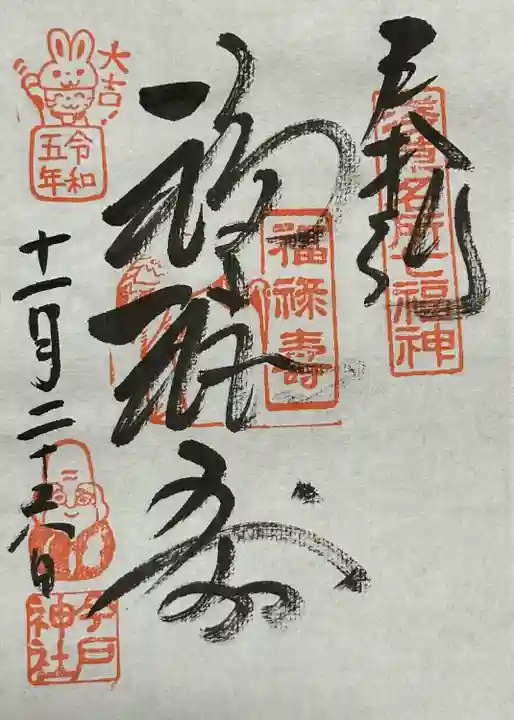 奉拝
名所七福神
福禄寿
福禄壽
大吉!
令和
五年
十一月二十六日
今戸
神社